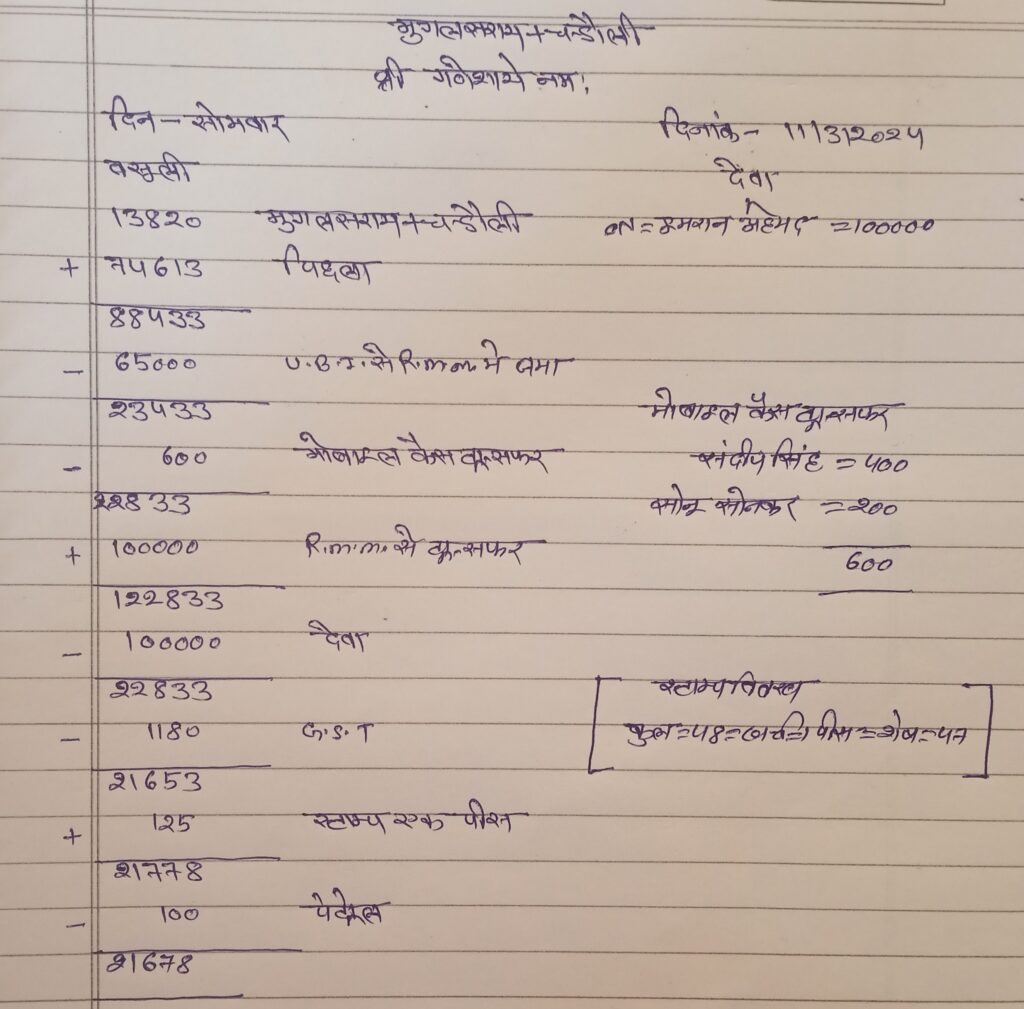 मुगलसराय+चन्डौली
श्री गणेशाये नमः
दिन - सोमवार दिनांक - 11/3/2024
वसुली देवा
13820 मुगलसराय+चन्डौली = इमरान अहमद =100000
+ 74613 पिछला
88433
- 65000 U.B.I. से R.m.m. मे जमा
23433 मोबाइल कैस ट्रान्सफर
- 600 मोबाइल कैस ट्रान्सफर संदीप सिंह = 400
22833 सोनू सोनकर = 200
+ 100000 R.m.m. से ट्रान्सफर 600
122833
- 100000 देवा
22833 स्टाम्प विवरण
- 1180 G.S.T कुल=48=खर्च=1 पीस=शेष=47
21653
+ 125 स्टाम्प एक पीस
21778
- 100 पेट्रोल
21678